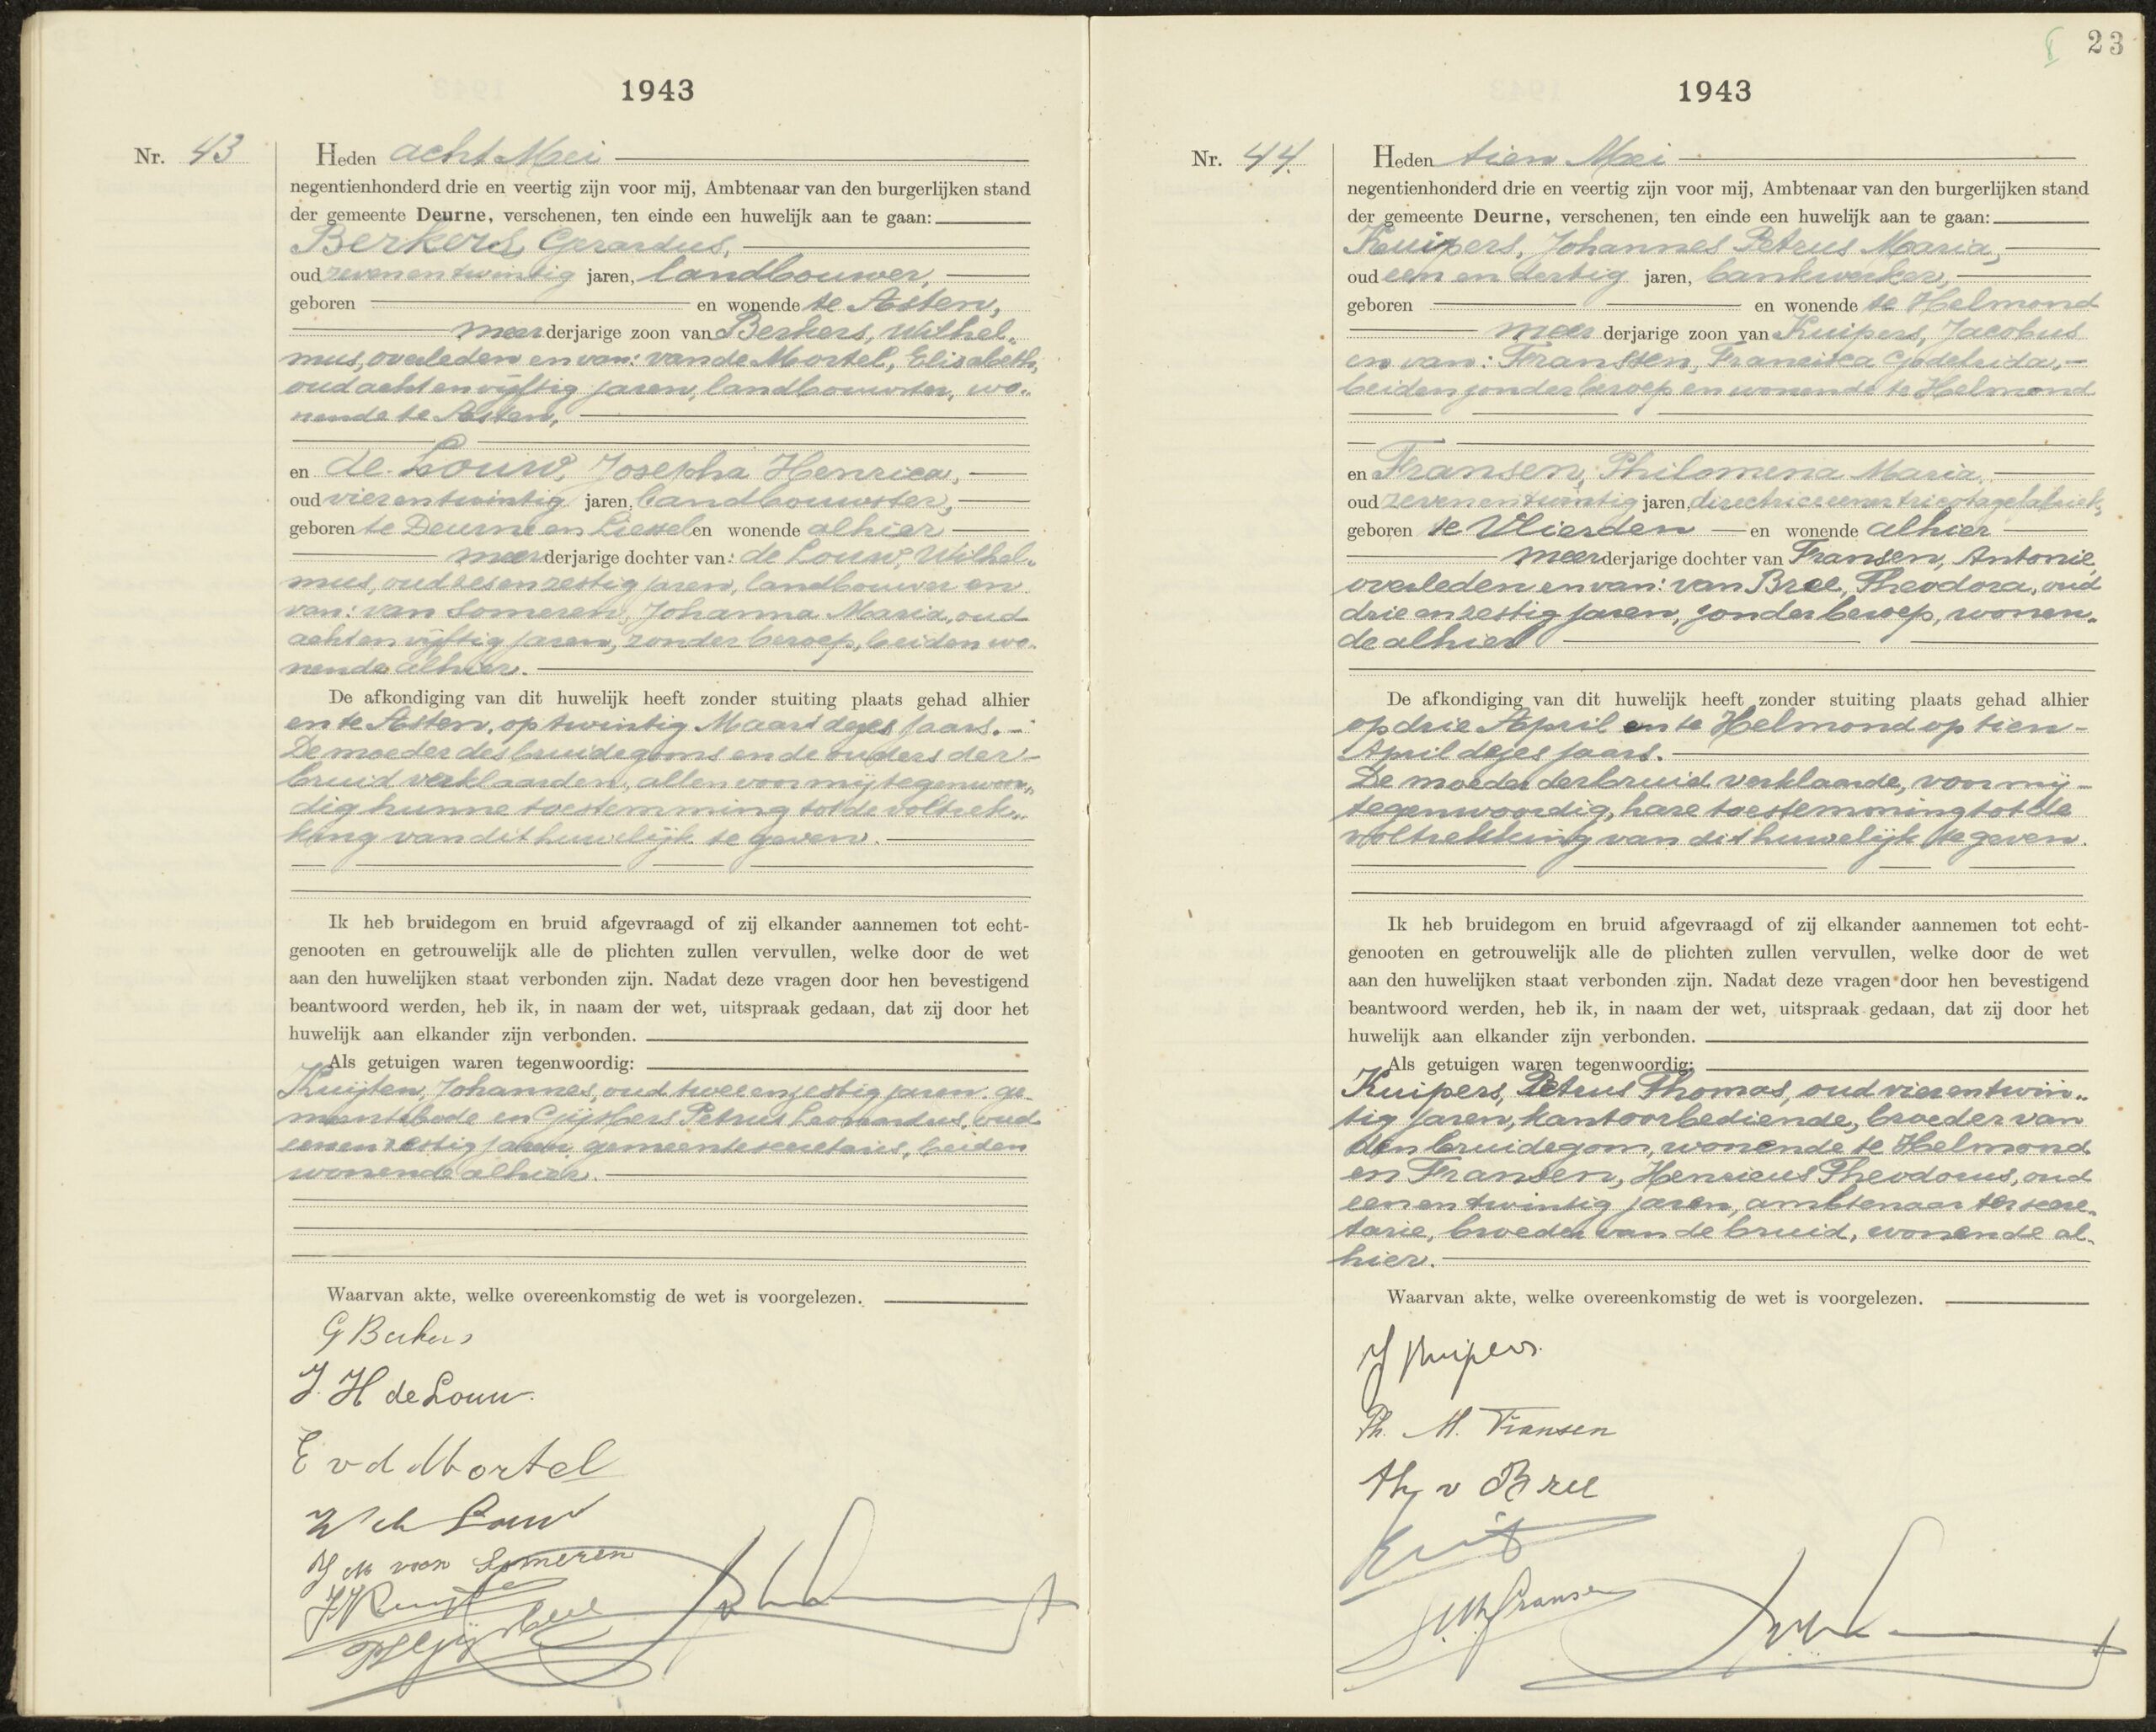 1943
Nr. 43
Heden acht Mei
negentienhonderd drie en veertig zijn voor mij, Ambtenaar van den burgerlijken stand
der gemeente Deurne, verschenen, ten einde een huwelijk aan te gaan:
Berkers, Gerardus,
oud zevenentwintig jaren, landbouwer,
geboren en wonende te Asten,
meerderjarige zoon van Berkers, Wilhel„
mus, overleden en van: van de Mortel, Elisabeth,
oud achtenvijftig jaren, landbouwster, wo„
nende te Asten,
en de Louw, Josepha Henrica,
oud vierentwintig jaren, landbouwster,
geboren te Deurne en Liessel en wonende alhier
meerderjarige dochter van: de Louw, Wilhel„
mus, oud zesenzestig jaren, landbouwer en
van: van Someren, Johanna Maria, oud
achtenvijftig jaren, zonder beroep, beiden wo„
nende alhier.
De afkondiging van dit huwelijk heeft zonder stuiting plaats gehad alhier
en te Asten, op twintig Maart dezes jaars.
De moeder des bruidegoms en de ouders der
bruid verklaarden, allen voor mij tegenwoor„
dig hunne toestemming tot de voltrek„
king van dit huwelijk te geven.
Ik heb bruidegom en bruid afgevraagd of zij elkander aannemen tot echt-
genooten en getrouwelijk alle de plichten zullen vervullen, welke door de wet
aan den huwelijken staat verbonden zijn. Nadat deze vragen door hen bevestigend
beantwoord werden, heb ik, in naam der wet, uitspraak gedaan, dat zij door het
huwelijk aan elkander zijn verbonden.
Als getuigen waren tegenwoordig:
Kuijten, Johannes, oud tweeenzestig jaren, ge-
meentebode en Cuijbers Petrus Leonardus, oud
eenenzestig jaren, gemeentesecretaris, beiden
wonende alhier.
Waarvan akte, welke overeenkomstig de wet is voorgelezen.
G Berkers
J. H de Louw.
E v d Mortel
W de Louw
J M van Someren
23
1943
Nr. 44.
Heden tien Mei
negentienhonderd drie en veertig zijn voor mij, Ambtenaar van den burgerlijken stand
der gemeente Deurne, verschenen, ten einde een huwelijk aan te gaan:
Kuipers, Johannes Petrus Maria,
oud een en dertig jaren, bankwerker,
geboren en wonende te Helmond
meerderjarige zoon van Kuipers, Jacobus
en van: Franssen, Francisca Godefrida,
beiden zonder beroep en wonende te Helmond
en Fransen, Philomena Maria,
oud zevenentwintig jaren, directrice eener tricotagefabriek,
geboren te Vlierden en wonende alhier
meerderjarige dochter van Fransen, Antonie,
overleden en van: van Bree, Theodora, oud
drie en zestig jaren, zonder beroep, wonen„
de alhier
De afkondiging van dit huwelijk heeft zonder stuiting plaats gehad alhier
op drie April en te Helmond op tien
April dezes jaars.
De moeder der bruid verklaarde, voor mij
tegenwoordig, hare toestemming tot de
voltrekking van dit huwelijk te geven.
Ik heb bruidegom en bruid afgevraagd of zij elkander aannemen tot echt-
genooten en getrouwelijk alle de plichten zullen vervullen, welke door de wet
aan den huwelijken staat verbonden zijn. Nadat deze vragen door hen bevestigend
beantwoord werden, heb ik, in naam der wet, uitspraak gedaan, dat zij door het
huwelijk aan elkander zijn verbonden.
Als getuigen waren tegenwoordig:
Kuipers, Petrus Thomas, oud vierentwin„
tig jaren, kantoorbediende, broeder van
den bruidegom, wonende te Helmond
en Fransen, Henricus Theodorus, oud
eenentwintig jaren, ambtenaar ter secre„
tarie, broeder van de bruid, wonende al„
hier.
Waarvan akte, welke overeenkomstig de wet is voorgelezen.
J Kuipers.
Ph. M. Fransen
Th v Bree